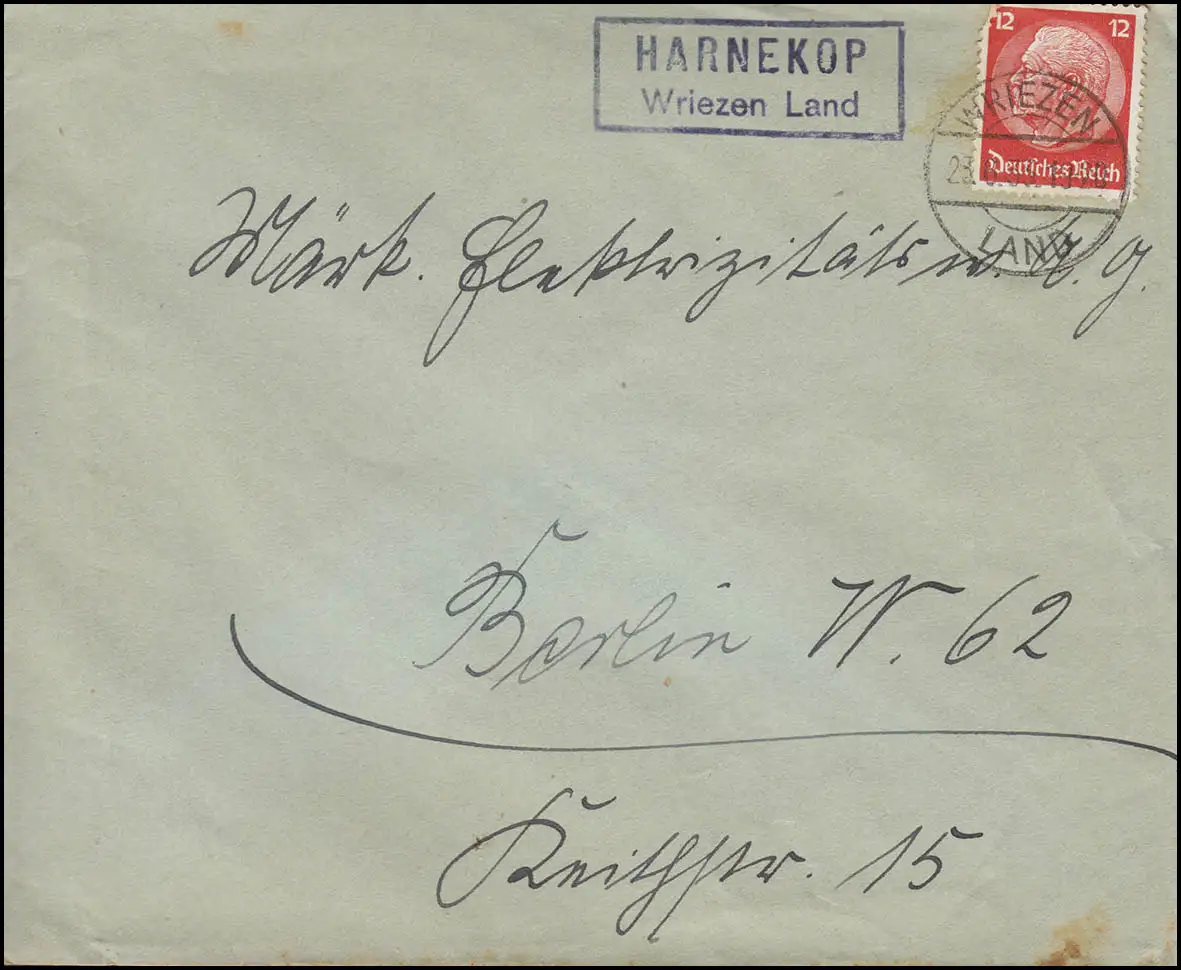 HARNEKOP
Wriezen Land
12 12
Deutsches Reich
WRIEZEN
LAND
Märk. Elektrizitätsw. A. G.
Berlin W. 62
Keithstr. 15